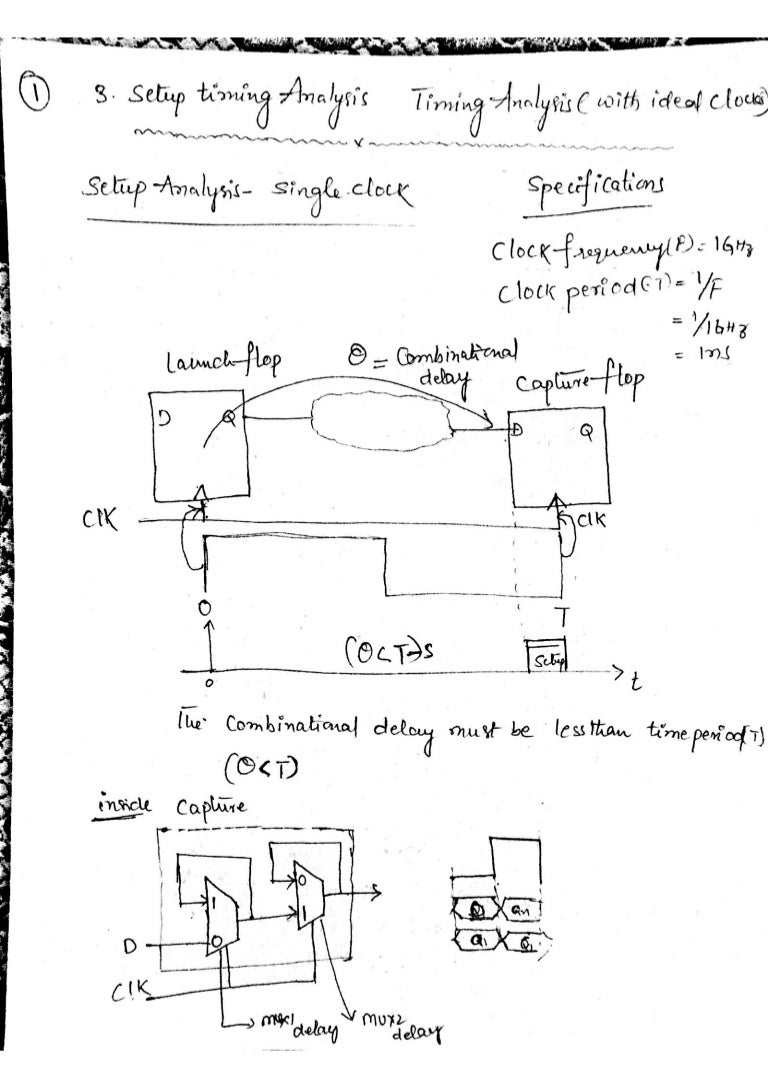 ① 3. Setup timing Analysis Timing Analysis (with ideal clocks)
Setup Analysis - Single clock
Specifications
Clock frequency(F) = 1GHz
Clock period(T) = 1/F
= 1/1GHz
= 1ns
Launch flop
θ = Combinational
delay
Capture flop
D Q
D Q
Clk
Clk
0 T
(θ<T)-s
Setup
0 t
The Combinational delay must be less than time period(T)
(θ<T)
inside Capture
0
1
1
D 0
Clk
mux1
delay
mux2
delay
Qm
Q1